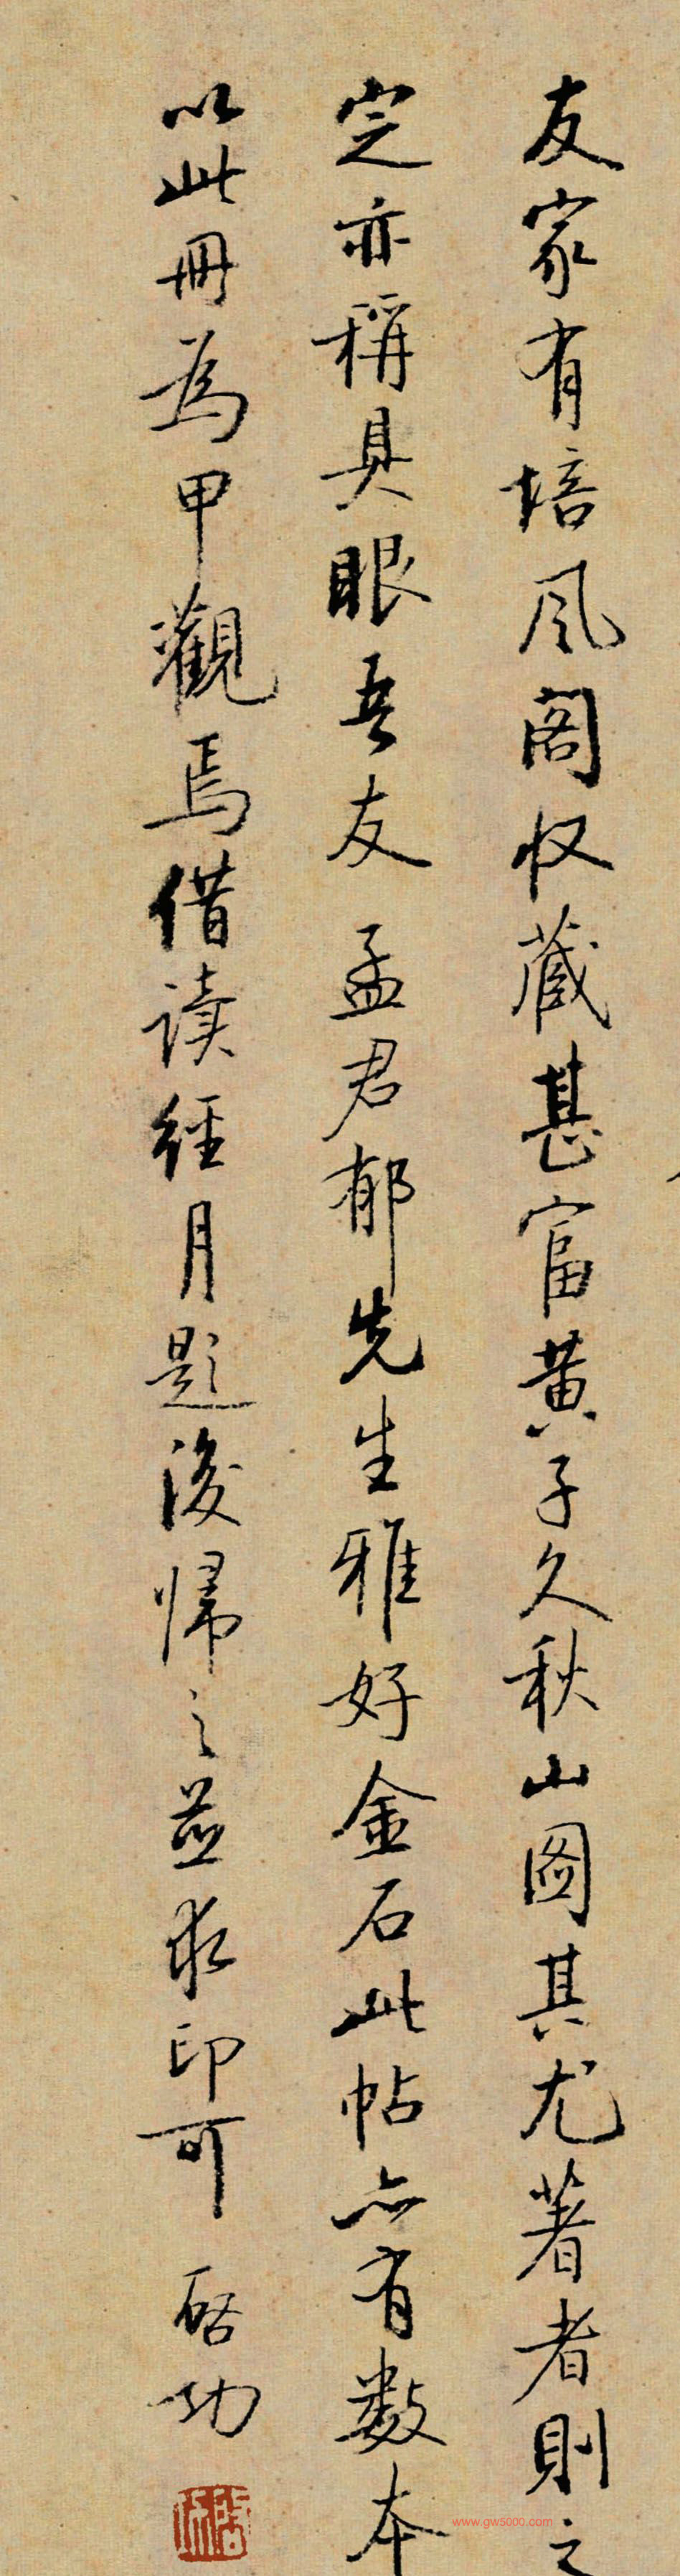 友家有培风阁收藏甚富黄子久秋山图其尤著者则之
定亦稱具眼吾友孟君郁先生雅好金石此帖亦有数本
以此冊為甲觀焉借读经月题後帰之並求印可 啓功
www.gw5000.com